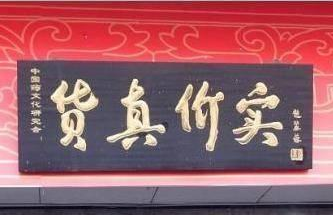 中国文化研究会
货真价实